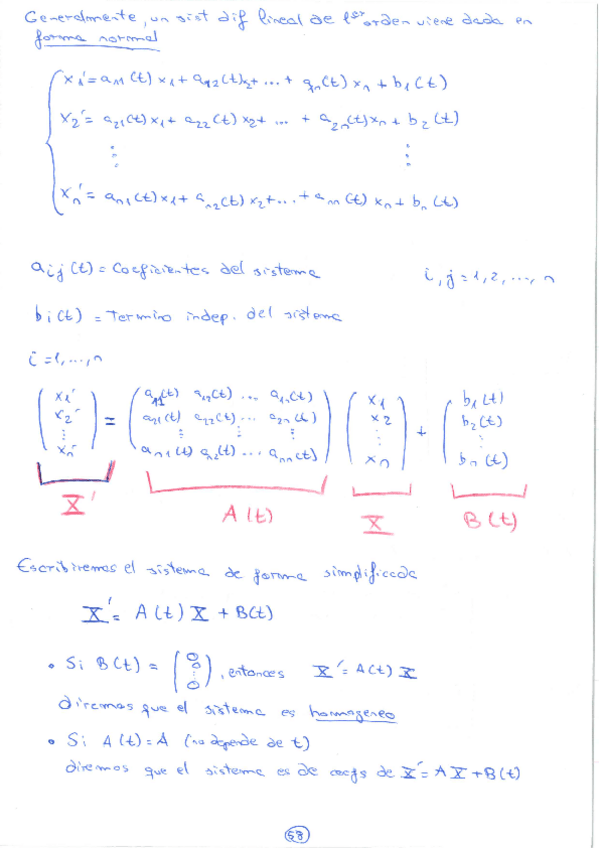 Generalmente, un sist dif lineal de 1er orden viene dada en
forma normal
x1' = a11(t) x1 + a12(t)2 + ... + an(t) xn + b1(t)
x2' = a21(t) x1 + a22(t) x2 + ... + a2n(t)xn + b2(t)
⋮ ⋮
xn' = an1(t) x1 + an2(t) x2 + ... + ann(t) xn + bn(t)
aij(t) = Coeficientes del sistema i, j = 1, 2, ..., n
bi(t) = Termino indep. del sistema
i = 1, ..., n
x1' a11(t) a12(t) ... a1n(t) x1 b1(t)
x2' = a21(t) a22(t) ... a2n(t) x2 + b2(t)
⋮ ⋮ ⋮ ⋮ ⋮ ⋮
xn' an1(t) an2(t) ... ann(t) xn bn(t)
X' A(t) X B(t)
Escribiremos el sistema de forma simplificada
X' = A(t) X + B(t)
• Si B(t) = (0 0 ⋮ 0), entonces X' = A(t) X
diremos que el sistema es homogeneo
• Si A(t) = A (no depende de t)
diremos que el sistema es de coefs de X' = A X + B(t)
58